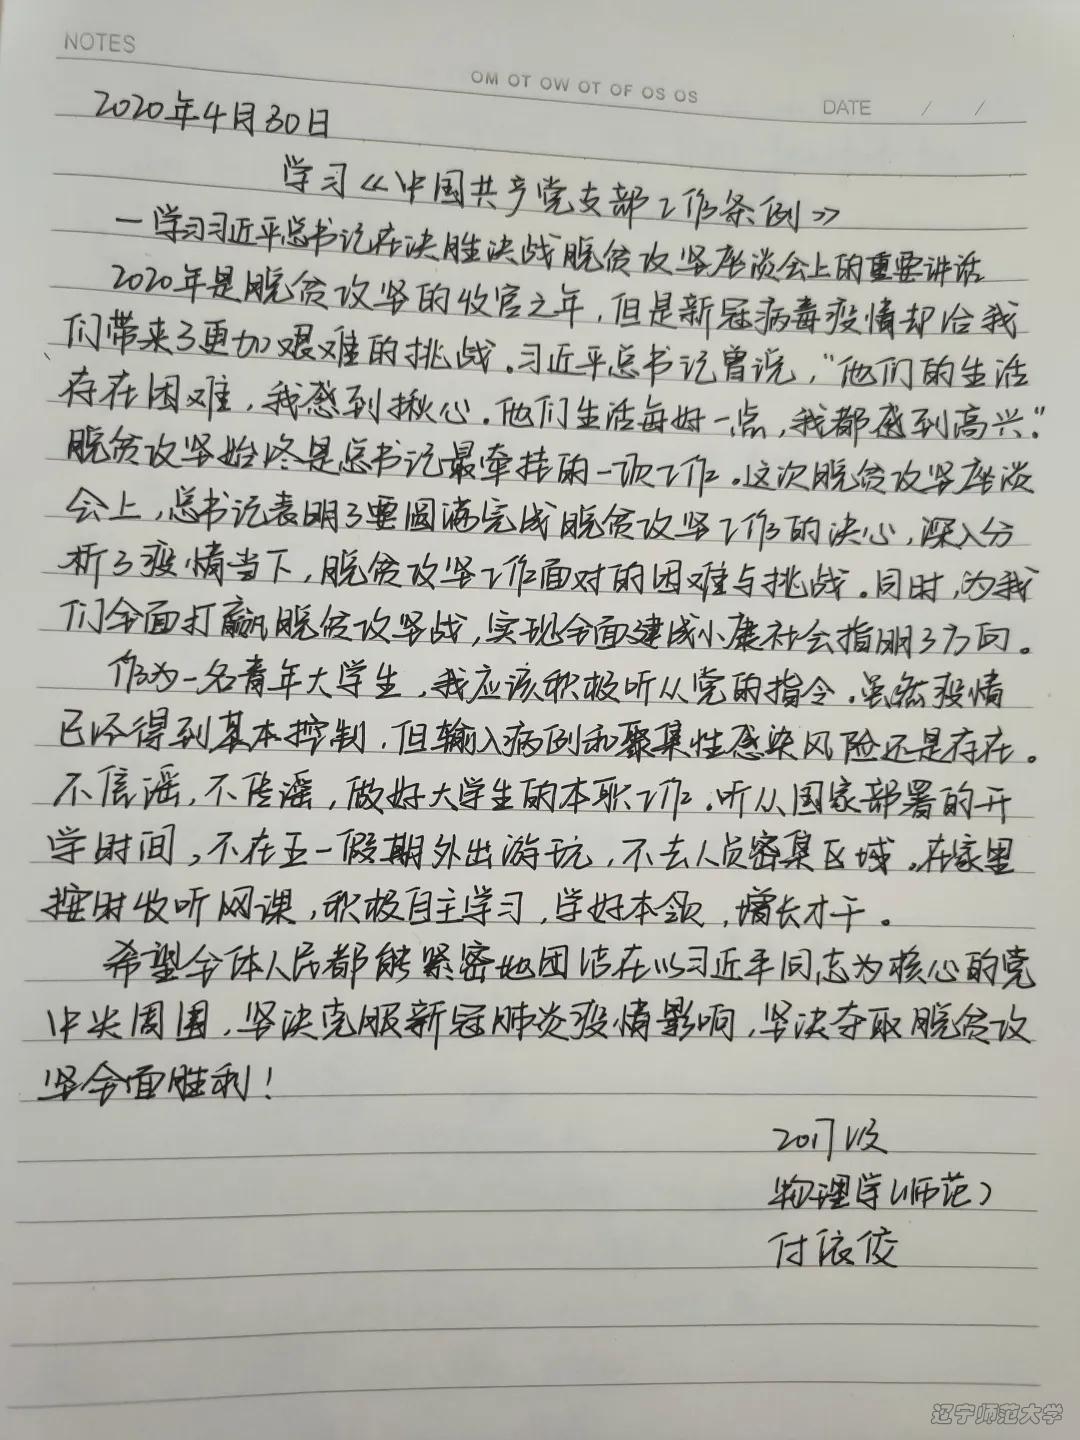 NOTES
OM OT OW OT OF OS OS
DATE / /
2020年4月30日
学习《中国共产党支部工作条例》
一学习习近平总书记在决胜决战脱贫攻坚座谈会上的重要讲话
2020年是脱贫攻坚的收官之年，但是新冠病毒疫情却给我
们带来了更加艰难的挑战。习近平总书记曾说，“他们的生活
存在困难，我感到揪心。他们生活每好一点，我都感到高兴。”
脱贫攻坚始终是总书记最牵挂的一项工作。这次脱贫攻坚座谈
会上，总书记表明了要圆满完成脱贫攻坚工作的决心，深入分
析了疫情当下，脱贫攻坚工作面对的困难与挑战。同时，为我
们全面打赢脱贫攻坚战，实现全面建成小康社会指明了方向。
作为一名青年大学生，我应该积极听从党的指令。虽然疫情
已经得到基本控制，但输入病例和聚集性感染风险还是存在。
不信谣，不传谣，做好大学生的本职工作。听从国家部署的开
学时间，不在五一假期外出游玩，不去人员密集区域。在家里
按时收听网课，积极自主学习，学好本领，增长才干。
希望全体人民都能紧密地团结在以习近平同志为核心的党
中央周围，坚决克服新冠肺炎疫情影响，坚决夺取脱贫攻
坚全面胜利！
2017级
物理学（师范）
付依佼
辽宁师范大学